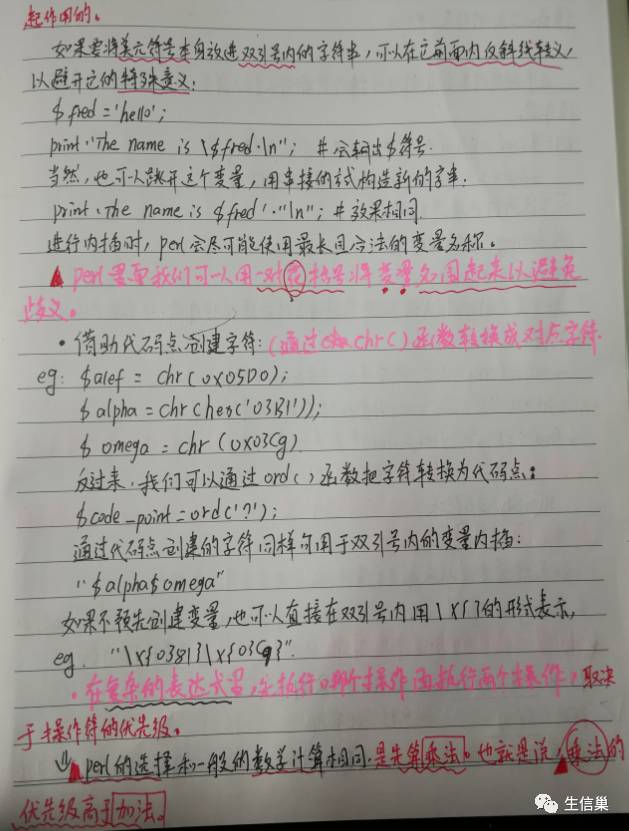 起作用的。
如果要将美元符号本身放进双引号内的字符串，可以在它前面内反斜线转义，
以避开它的特殊意义：
$fred='hello';
print "The name is \$fred.\n"; #会输出$符号.
当然，也可以跳开这个变量，用串接的方式构造新的字串：
print 'The name is $fred'."\n"; #效果相同.
进行内插时，perl会尽可能使用最长且合法的变量名称。
perl里面我们可以用一对花括号将变量名围起来以避免
歧义。
·借助代码点创建字符：(通过chr()函数转换成对应字符.
eg: $alef = chr(0x05D0);
$alpha = chr(hex('03B1'));
$omega = chr(0x03Cg)
反过来，我们可以通过ord()函数把字符转换为代码点：
$code_point=ord('?');
通过代码点创建的字符同样可用于双引号内的变量内插：
"$alpha$omega"
如果不预先创建变量，也可以直接在双引号内用\x{}的形式表示，
eg. "\x{03B1}\x{03Cg}".
·在复杂的表达式里，先执行哪个操作再执行两个操作，取决
于操作符的优先级。
perl的选择和一般的数学计算相同.是先算乘法。也就是说，乘法的
优先级高于加法。
生信巢